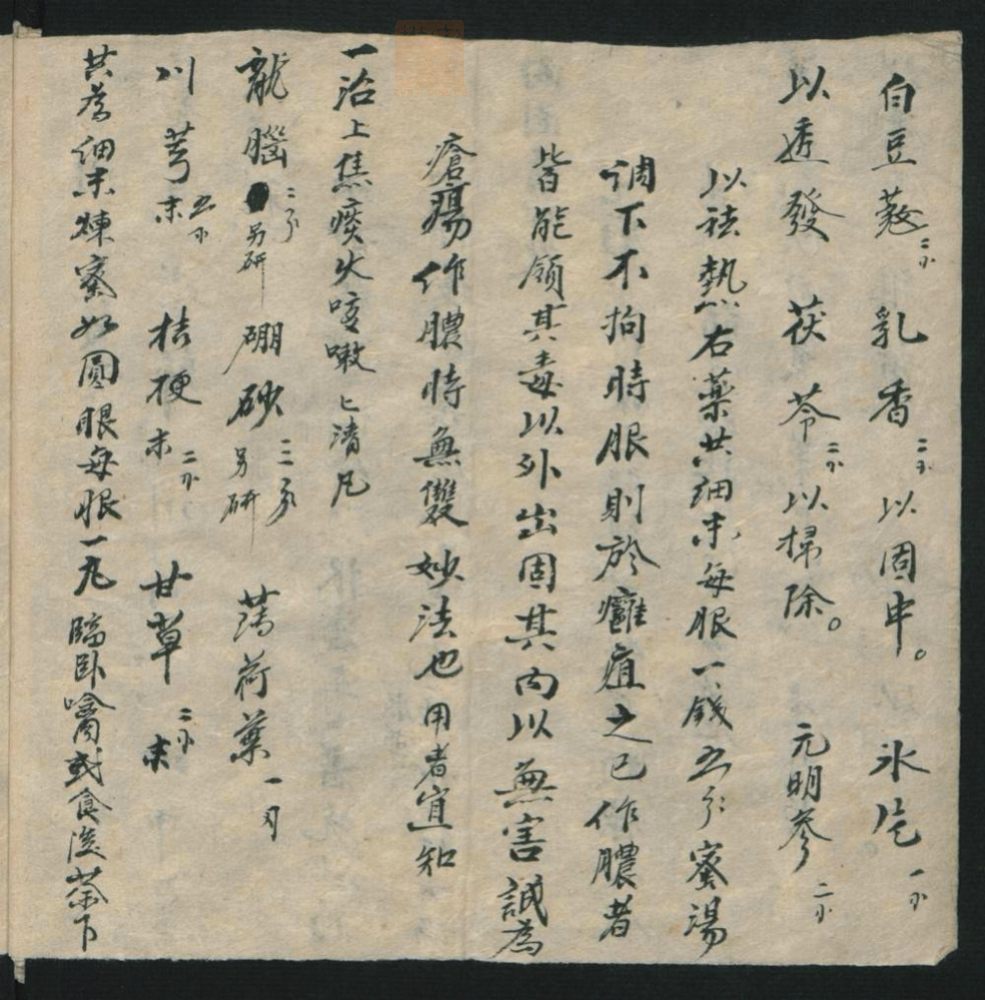 白豆蔻二小 乳香二小以固中。 氷片一小
以透發 茯苓二小以掃除。 元明參二小
以祛熱右藥共細末每服一錢五分蜜湯
調下不拘時服則於癰疽之已作膿者
皆能領其毒以外出固其內以無害誠為
瘡瘍作膿時無雙妙法也用者宜知
一治上焦痰火咳嗽上清丸
龍腦二分另研 硼砂二分另研 薄荷葉一刃
川芎末五小 桔梗末二小 甘草末二小
共為細末煉蜜如圓眼每服一丸臨卧噙或食後茶下